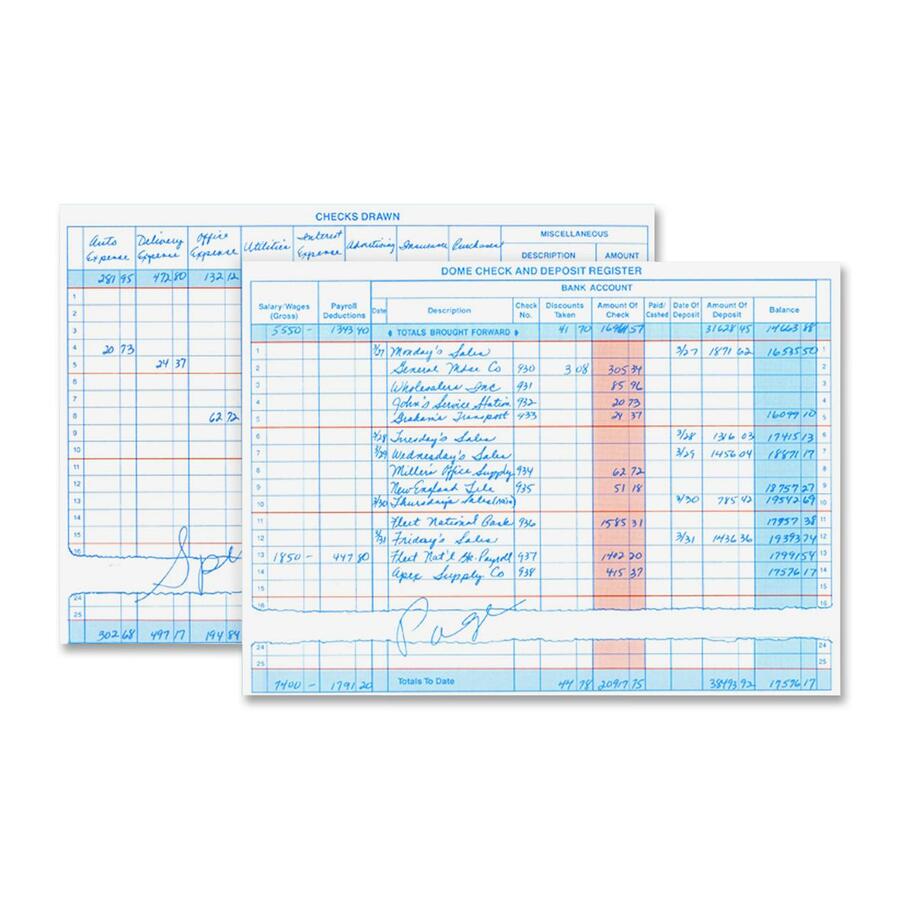 CHECKS DRAWN
MISCELLANEOUS
Auto Expense Delivery Expense Office Expense Utilities Interest Expense Advertising Insurance Purchases DESCRIPTION AMOUNT
281 95 472 80 132 12
1
2
3
4 20 73
5 24 37
6
7
8 62 72
9
10
11
12
13
14
15
16
Spe
24
25
302 68 497 17 194 84
DOME CHECK AND DEPOSIT REGISTER
BANK ACCOUNT
Salary/Wages (Gross) Payroll Deductions Date Description Check No. Discounts Taken Amount Of Check Paid/Cashed Date Of Deposit Amount Of Deposit Balance
5550 - 1343 40 TOTALS BROUGHT FORWARD 41 70 31628 45 14663 88
1 3/27 Monday's Sales 3/27 1871 62 16535 50 1
2 General Mdse Co 930 3 08 305 34 2
3 Wholesalers Inc 931 85 96 3
4 John's Service Station 932 20 73 4
5 Graham's Transport 933 24 37 16099 10 5
6 3/28 Tuesday's Sales 3/28 1316 03 17415 13 6
7 3/29 Wednesday's Sales 3/29 1456 04 18871 17 7
8 Miller's Office Supply 934 62 72 8
9 New England Tele 935 51 18 18757 27 9
10 3/30 Thursday's Sales 3/30 785 42 19542 69 10
11 Fleet National Bank 936 1585 31 17957 38 11
12 3/31 Friday's Sales 3/31 1436 36 19393 74 12
13 1850 - 447 80 Fleet Nat'l Bk-Payroll 937 1402 20 17991 54 13
14 Apex Supply Co 938 415 37 17576 17 14
15 15
16 16
Page
24 24
25 25
7400 - 1791 20 Totals To Date 44 78 20917 75 38493 92 17576 17